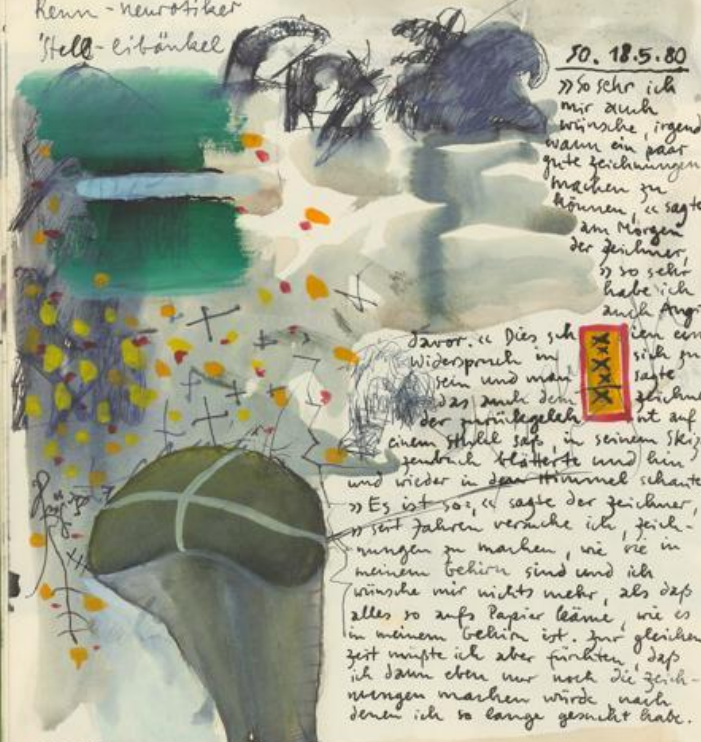 Kenn-neurotiker
Stell-eibänkel
SO. 18.5.80
»So sehr ich
mir auch
wünsche, irgend
wann ein paar
gute Zeichnungen
machen zu
können, « sagte
am Morgen
der Zeichner,
» so sehr
habe ich
auch Angst
davor. « Dies sch ien ein
Widerspruch in sich zu
sein und man sagte
das auch dem Zeichne
der zurückgeleh nt auf
einem Stuhl saß, in seinem Skiz
zenbuch blätterte und hin
und wieder in den Himmel schaute
» Es ist so:, « sagte der Zeichner,
» seit Jahren versuche ich, Zeich-
nungen zu machen, wie sie in
meinem Gehirn sind und ich
wünsche mir nichts mehr, als daß
alles so aufs Papier käme, wie es
in meinem Gehirn ist. Zur gleichen
Zeit müßte ich aber fürchten, daß
ich dann eben nur noch die Zeich-
nungen machen würde, nach
denen ich so lange gesucht habe.